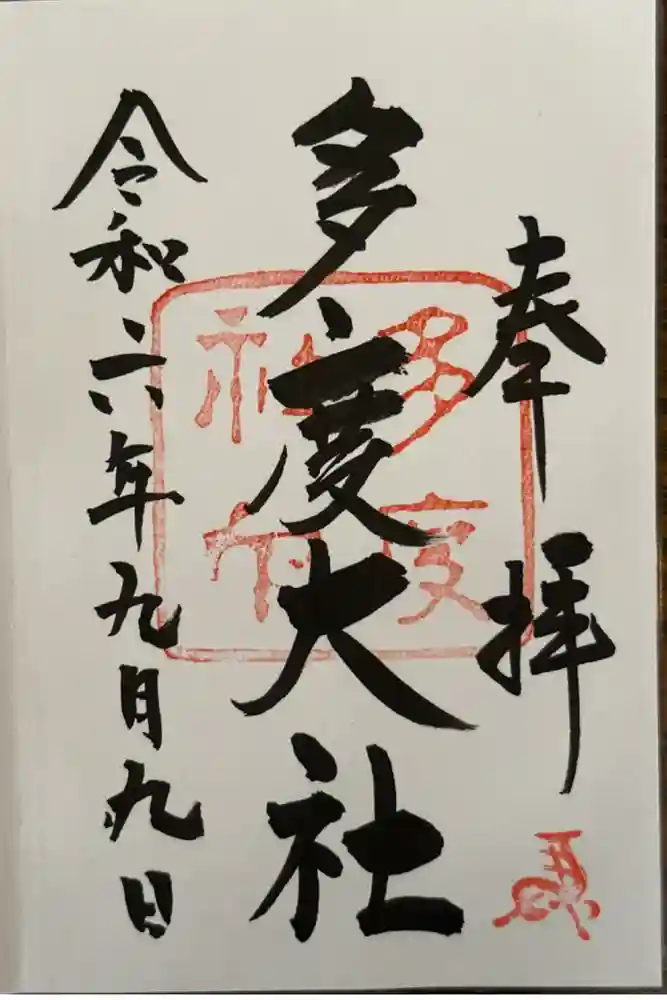 奉拝
多度大社
令和六年九月九日
多度
神社